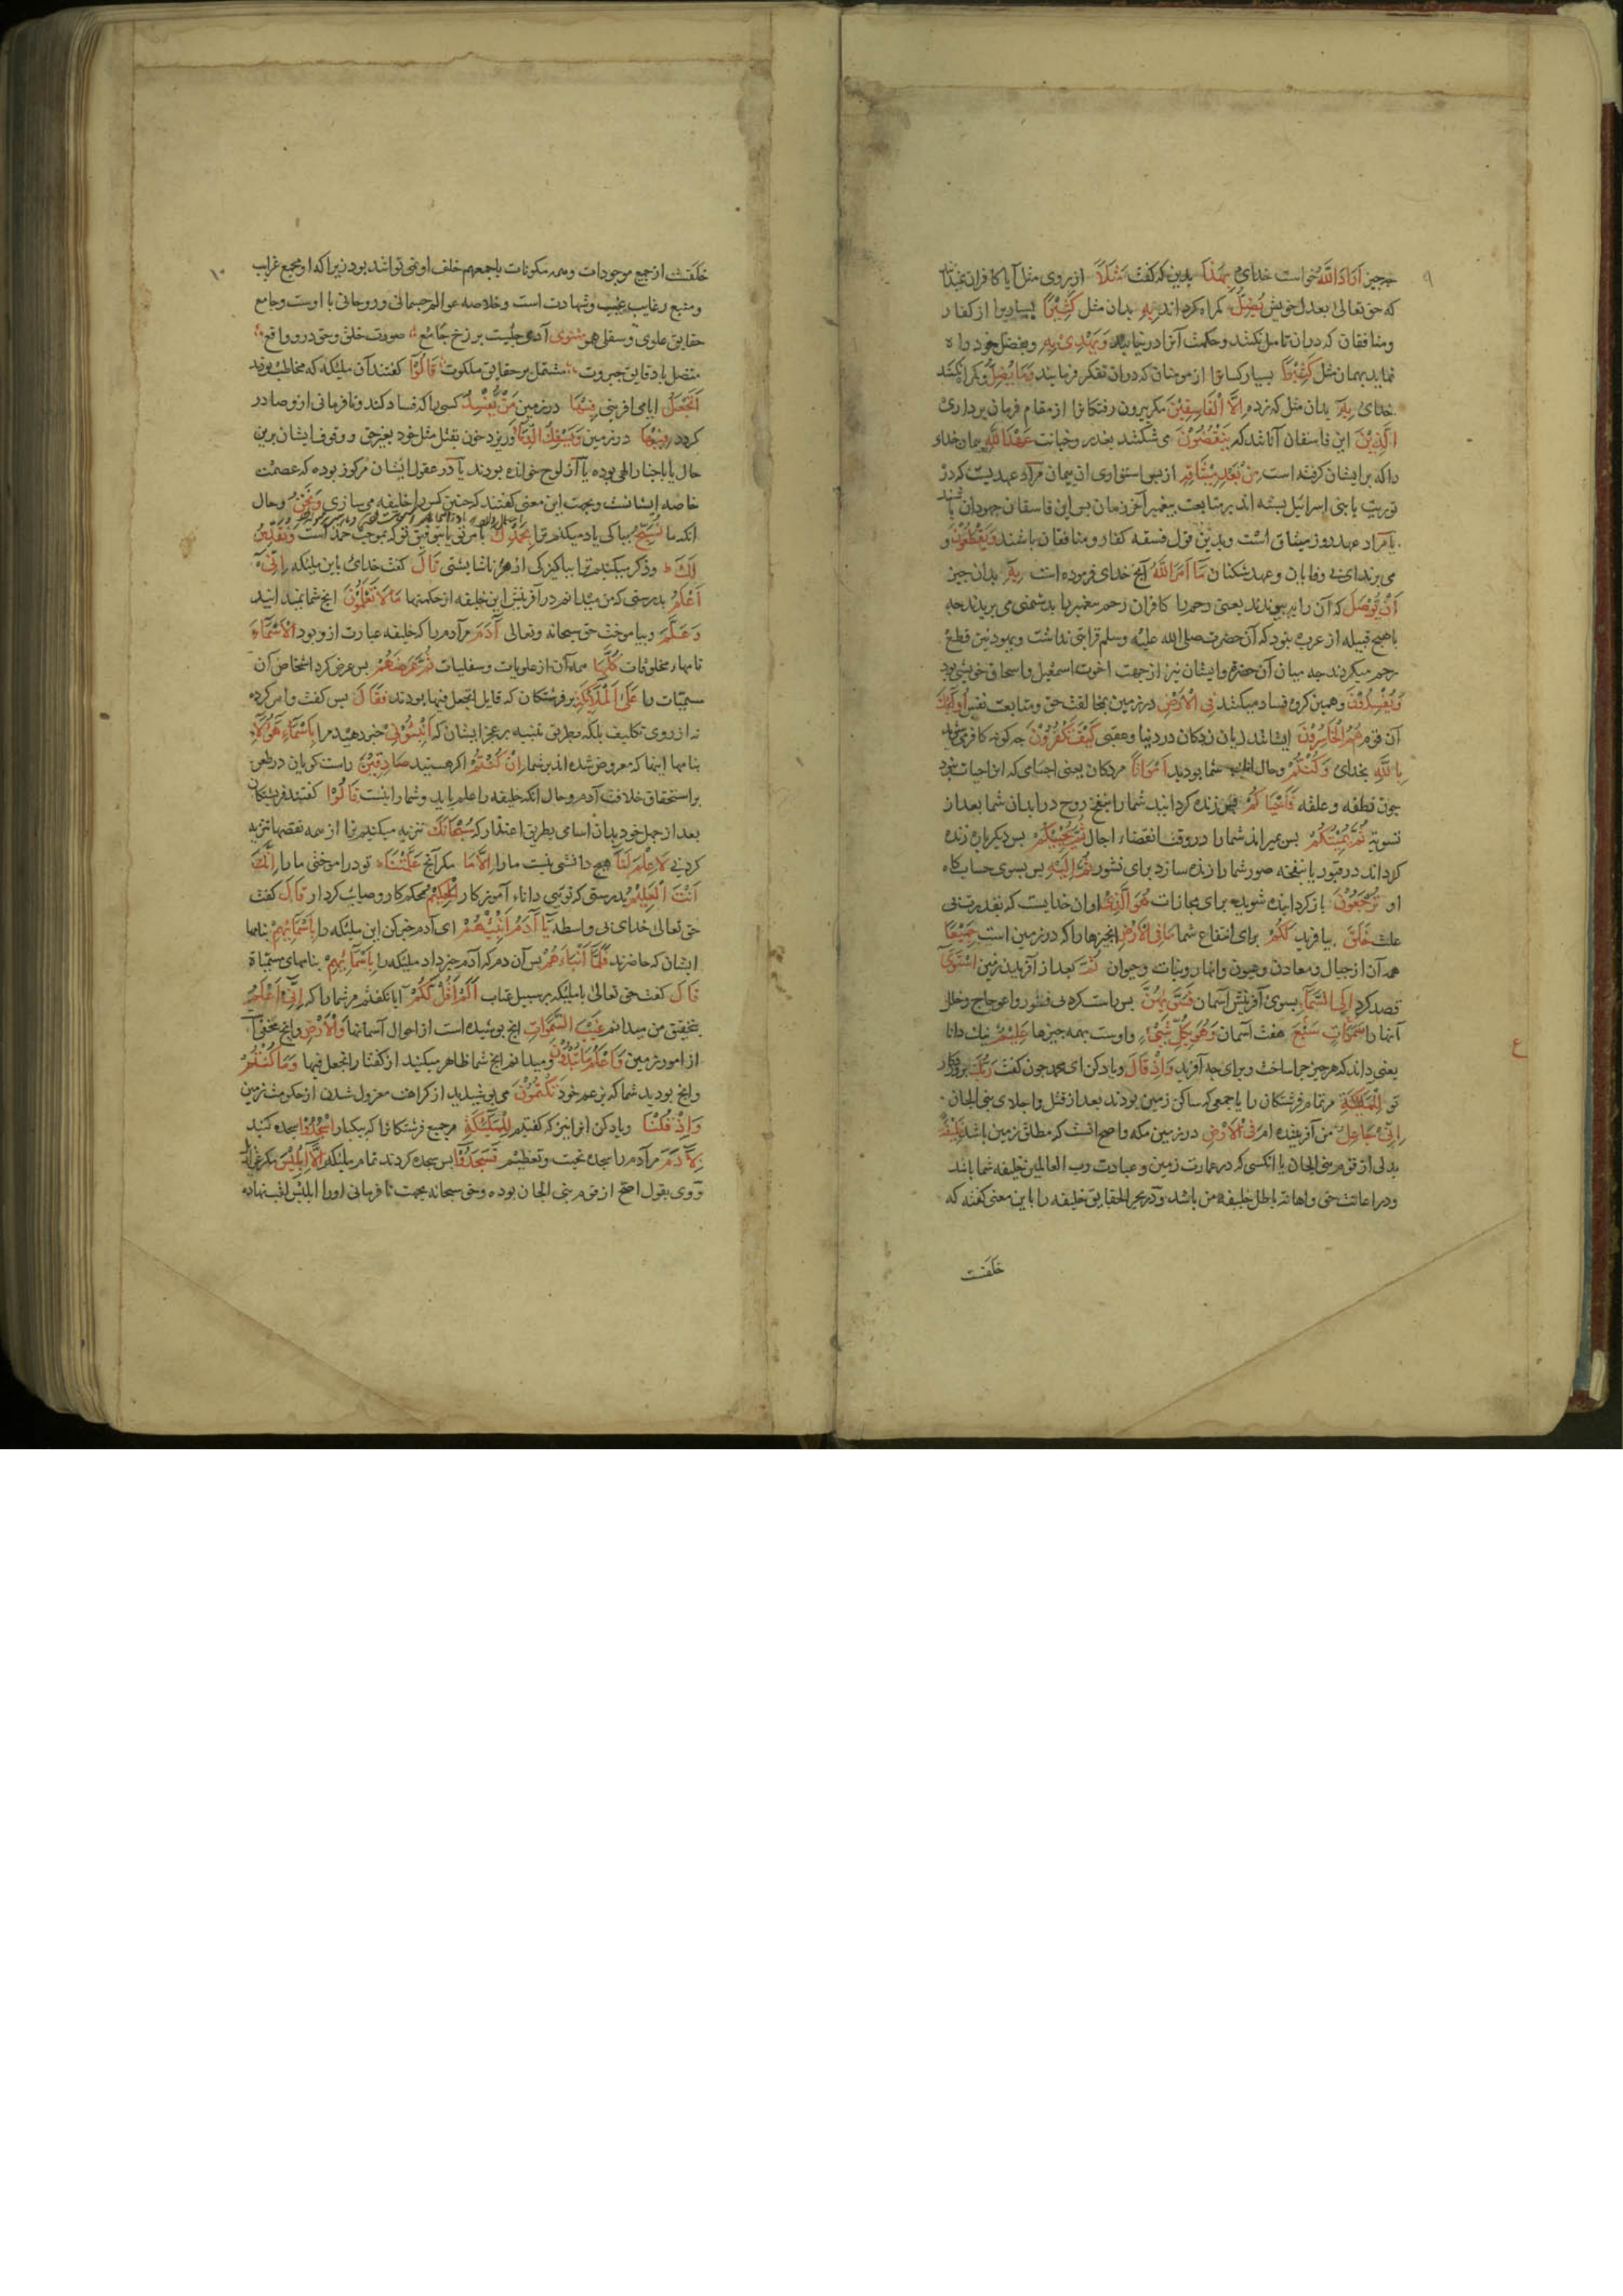 ۹
چه چیز اَرَادَ اللّٰهُ خواست خدای بِهٰذَا بدین که گفت مَثَلًا از روی مثل آیا کافران نمیدانند
که حق تعالی بعدل خویش یُضِلُّ گمراه کرداند بِهٖ بدان مثل کَثِیْرًا بسیاریرا از کفار
و منافقان که دران تامل نکنند و حکمت آنرا درنیابند وَیَهْدِیْ بِهٖ و بفضل خود راه
نماید بهمان مثل کَثِیْرًا بسیار کسانرا از مومنان که دران تفکر فرمایند وَمَا یُضِلُّ و گمراه نکند
خدای بِهٖ بدان مثل که زده اِلَّا الْفَاسِقِیْنَ مکر بیرون رفتکانرا از مقام فرمان برداری
اَلَّذِیْنَ این فاسقان آنانند که یَنْقُضُوْنَ می شکنند بغدر و خیانت عَهْدَ اللّٰهِ پیمان خدای
را که بر ایشان کرفته است مِنْ بَعْدِ مِیْثَاقِهٖ از پس استواری ان پیمان مراد عهدیست که در
توریت با بنی اسرائیل بسته اند بر متابعت پیغمبر آخر زمان پس این فاسقان جهودان باشند
یا مراد عهد روز میثاق است و بدین قول فسقه کفار و منافقان باشند وَیَقْطَعُوْنَ و
می برند ای بی وفایان و عهد شکنان مَا اَمَرَ اللّٰهُ آنچ خدای فرموده است بِهٖ بدان چیز
اَنْ یُّوْصَلَ که آن را به پیوندند یعنی رحم را کافران رحم پیغمبر را بدشمنی می بریدند چه
با هیچ قبیله از عرب نبود که آن حضرت صلی الله علیه وسلم قرابتی نداشت و یهود نیز قطع
رحم میکردند چه میان آن حضرت و ایشان نیز از جهت اخوت اسمعیل و اسحاق خویشی بود
وَیُفْسِدُوْنَ و همین کروه فساد میکنند فِی الْاَرْضِ در زمین بمخالفت حق و متابعت نفس اُولٰئِکَ
آن قوم هُمُ الْخَاسِرُوْنَ ایشانند زیان زدکان در دنیا و عقبی کَیْفَ تَکْفُرُوْنَ چه کونه کافر می شوید
بِاللّٰهِ بخدای وَکُنْتُمْ و حال انکه شما بودید اَمْوَاتًا مردکان یعنی اجسامی که انرا حیات نبود
چون نطفه و علقه فَاَحْیَاکُمْ پس زنده کردانید شما را بنفخ روح در ابدان شما بعد از
تسویه ثُمَّ یُمِیْتُکُمْ پس بمیراند شما را در وقت انقضاء اجال ثُمَّ یُحْیِیْکُمْ پس دیکرباره زنده
کرداند در قبور یا بنفخه صور شما را زنده سازد برای نشور ثُمَّ اِلَیْهِ پس بسوی حسابکاه
او تُرْجَعُوْنَ بازکردانیده شوید برای مجازات هُوَ الَّذِیْ او ان خدایست که بقدرت بی
علت خَلَقَ بیافرید لَکُمْ برای انتفاع شما مَا فِی الْاَرْضِ انچیزها را که در زمین است جَمِیْعًا
همه آن از جبال و معادن و عیون و انهار و نبات و حیوان ثُمَّ بعد از آفریدن زمین اسْتَوٰی
قصد کرد اِلَی السَّمَاءِ بسوی آفرینش آسمان فَسَوّٰهُنَّ پس راست کرد بی فطور و اعوجاج و خلل
آنها را سَبْعَ سَمٰوَاتٍ هفت آسمان وَهُوَ بِکُلِّ شَیْءٍ و اوست بهمه چیزها عَلِیْمٌ نیک دانا
ع
یعنی داند که هر چیز چرا ساخت و برای چه آفرید وَاِذْ قَالَ و یاد کن ای محمد چون کفت رَبُّکَ پروردکار
تو لِلْمَلٰئِکَةِ مر تمام فرشتکان را یا جمعی که ساکن زمین بودند بعد از قتل و اجلای بنی الجان
اِنِّیْ جَاعِلٌ من آفریننده ام فِی الْاَرْضِ در زمین مکه و اصح انست که مطلق زمین باشد خَلِیْفَةً
بدلی از قوم بنی الجان یا انکسی که در عمارت زمین و عبادت رب العالمین خلیفه شما باشد
و در اعانت حق و اهانت باطل خلیفه من باشد و در بحر الحقایق خلیفه را باین معنی کفته که
خلَفت
۱۰
خلَفت از جمیع موجودات و همه مکونات باجمعهم خلف او نمی تواند بود زیرا که او مجمع غرایب
و منبع رغایب غیب و شهادت است و خلاصه عوالم جسمانی و روحانی با اوست و جامع
حقایق علوی و سفلی هو مثنوی آدمی چیست برزخ جامع صورت خلق و حق درو واقع
متصل با دقایق جبروت مشتمل بر حقایق ملکوت قَالُوْا کفتند آن ملئکه که مخاطب بودند
اَتَجْعَلُ ایا می آفرینی فِیْهَا در زمین مَنْ یُّفْسِدُ کسی را که فساد کند و نافرمانی از و صادر
کردد فِیْهَا در زمین وَیَسْفِکُ الدِّمَاءَ و ریزد خون بقتل مثل خود بغیر حق و وقوف ایشان برین
حال یا باخبار الهی بوده یا از لوح خوانده بودند یا در عقول ایشان مرکوز بوده که عصمت
خاصه ایشانست و بجهت این معنی کفتند که چنین کس را خلیفه می سازی وَنَحْنُ و حال
انکه ما نُسَبِّحُ بپاکی یاد میکنیم ترا بِحَمْدِکَ بامر تو یا بتوفیق تو که بموجب حمد است وَنُقَدِّسُ
لَکَ و ذکر میکنیم ترا بپاکیزکی از هر ناشایستی قَالَ کفت خدای باین ملئکه اِنِّیْ
اَعْلَمُ بدرستی که من میدانم در آفرینش این خلیفه از حکمتها مَا لَا تَعْلَمُوْنَ آنچ شما نمیدانید
وَعَلَّمَ و بیاموخت حق سبحانه وتعالی آدَمَ مر آدم را که خلیفه عبارت از و بود الْاَسْمَاءَ
نامهاء مخلوقات کُلَّهَا همه آن از علویات و سفلیات ثُمَّ عَرَضَهُمْ پس عرض کرد اشخاص آن
مسمیات را عَلَی الْمَلٰئِکَةِ بر فرشتکان که قایل اتجعل فیها بودند فَقَالَ پس کفت و امر کرد
نه از روی تکلیف بلکه بطریق تنبیه بر عجز ایشان که اَنْبِئُوْنِیْ خبر دهید مرا بِاَسْمَاءِ هٰؤُلَاءِ
بنامها اینها که معروض شده اند بر شما اِنْ کُنْتُمْ اکر هستید صَادِقِیْنَ راست کویان در طعن
بر استحقاق خلافت آدم و حال انکه خلیفه را علم باید و شما را نیست قَالُوْا کفتند فرشتکان
بعد از جهل خود بدان اسامی بطریق اعتذار که سُبْحَانَکَ تنزیه میکنیم ترا از همه نقصها تنزیه
کردنی لَا عِلْمَ لَنَا هیچ دانشی نیست ما را اِلَّا مَا مکر آنچ عَلَّمْتَنَا تو در اموختی ما را اِنَّکَ
اَنْتَ الْعَلِیْمُ بدرستی که تویی داناء آموزکار الْحَکِیْمُ محکم کار و صایب کردار قَالَ کفت
حق تعالی خدای بی واسطه یَا آدَمُ اَنْبِئْهُمْ ای آدم خبر کن این ملئکه را بِاَسْمَائِهِمْ بنامها
ایشان که حاضرند فَلَمَّا اَنْبَاَهُمْ پس آن دم که آدم خبر داد ملئکه را بِاَسْمَائِهِمْ بنامهای مسمیات
قَالَ کفت حق تعالی با ملئکه بر سبیل عتاب اَلَمْ اَقُلْ لَّکُمْ آیا نکفتم مر شما را که اِنِّیْ اَعْلَمُ
بتحقیق من میدانم غَیْبَ السَّمٰوَاتِ آنچ پوشیده است از احوال آسمانها وَالْاَرْضِ و آنچ مخفی
از امور زمین وَاَعْلَمُ مَا تُبْدُوْنَ و میدانم آنچ شما ظاهر میکنید از کفتار اتجعل فیها وَمَا کُنْتُمْ
و آنچ بودید شما که بزعم خود تَکْتُمُوْنَ می پوشیدید از کراهت معزول شدن از حکومت زمین
وَاِذْ قُلْنَا و یاد کن انرا نیز که کفتیم لِلْمَلٰئِکَةِ مر جمیع فرشتکانرا که بیکبار اسْجُدُوْا سجده کنید
لِآدَمَ مر آدم را سجده تحیت و تعظیم فَسَجَدُوْا پس سجده کردند تمام ملئکه اِلَّا اِبْلِیْسَ مکر عزازیل
و وی بقول اصح از قوم بنی الجان بوده و حق سبحانه بجهت نافرمانی او را ابلیس لقب نهاده